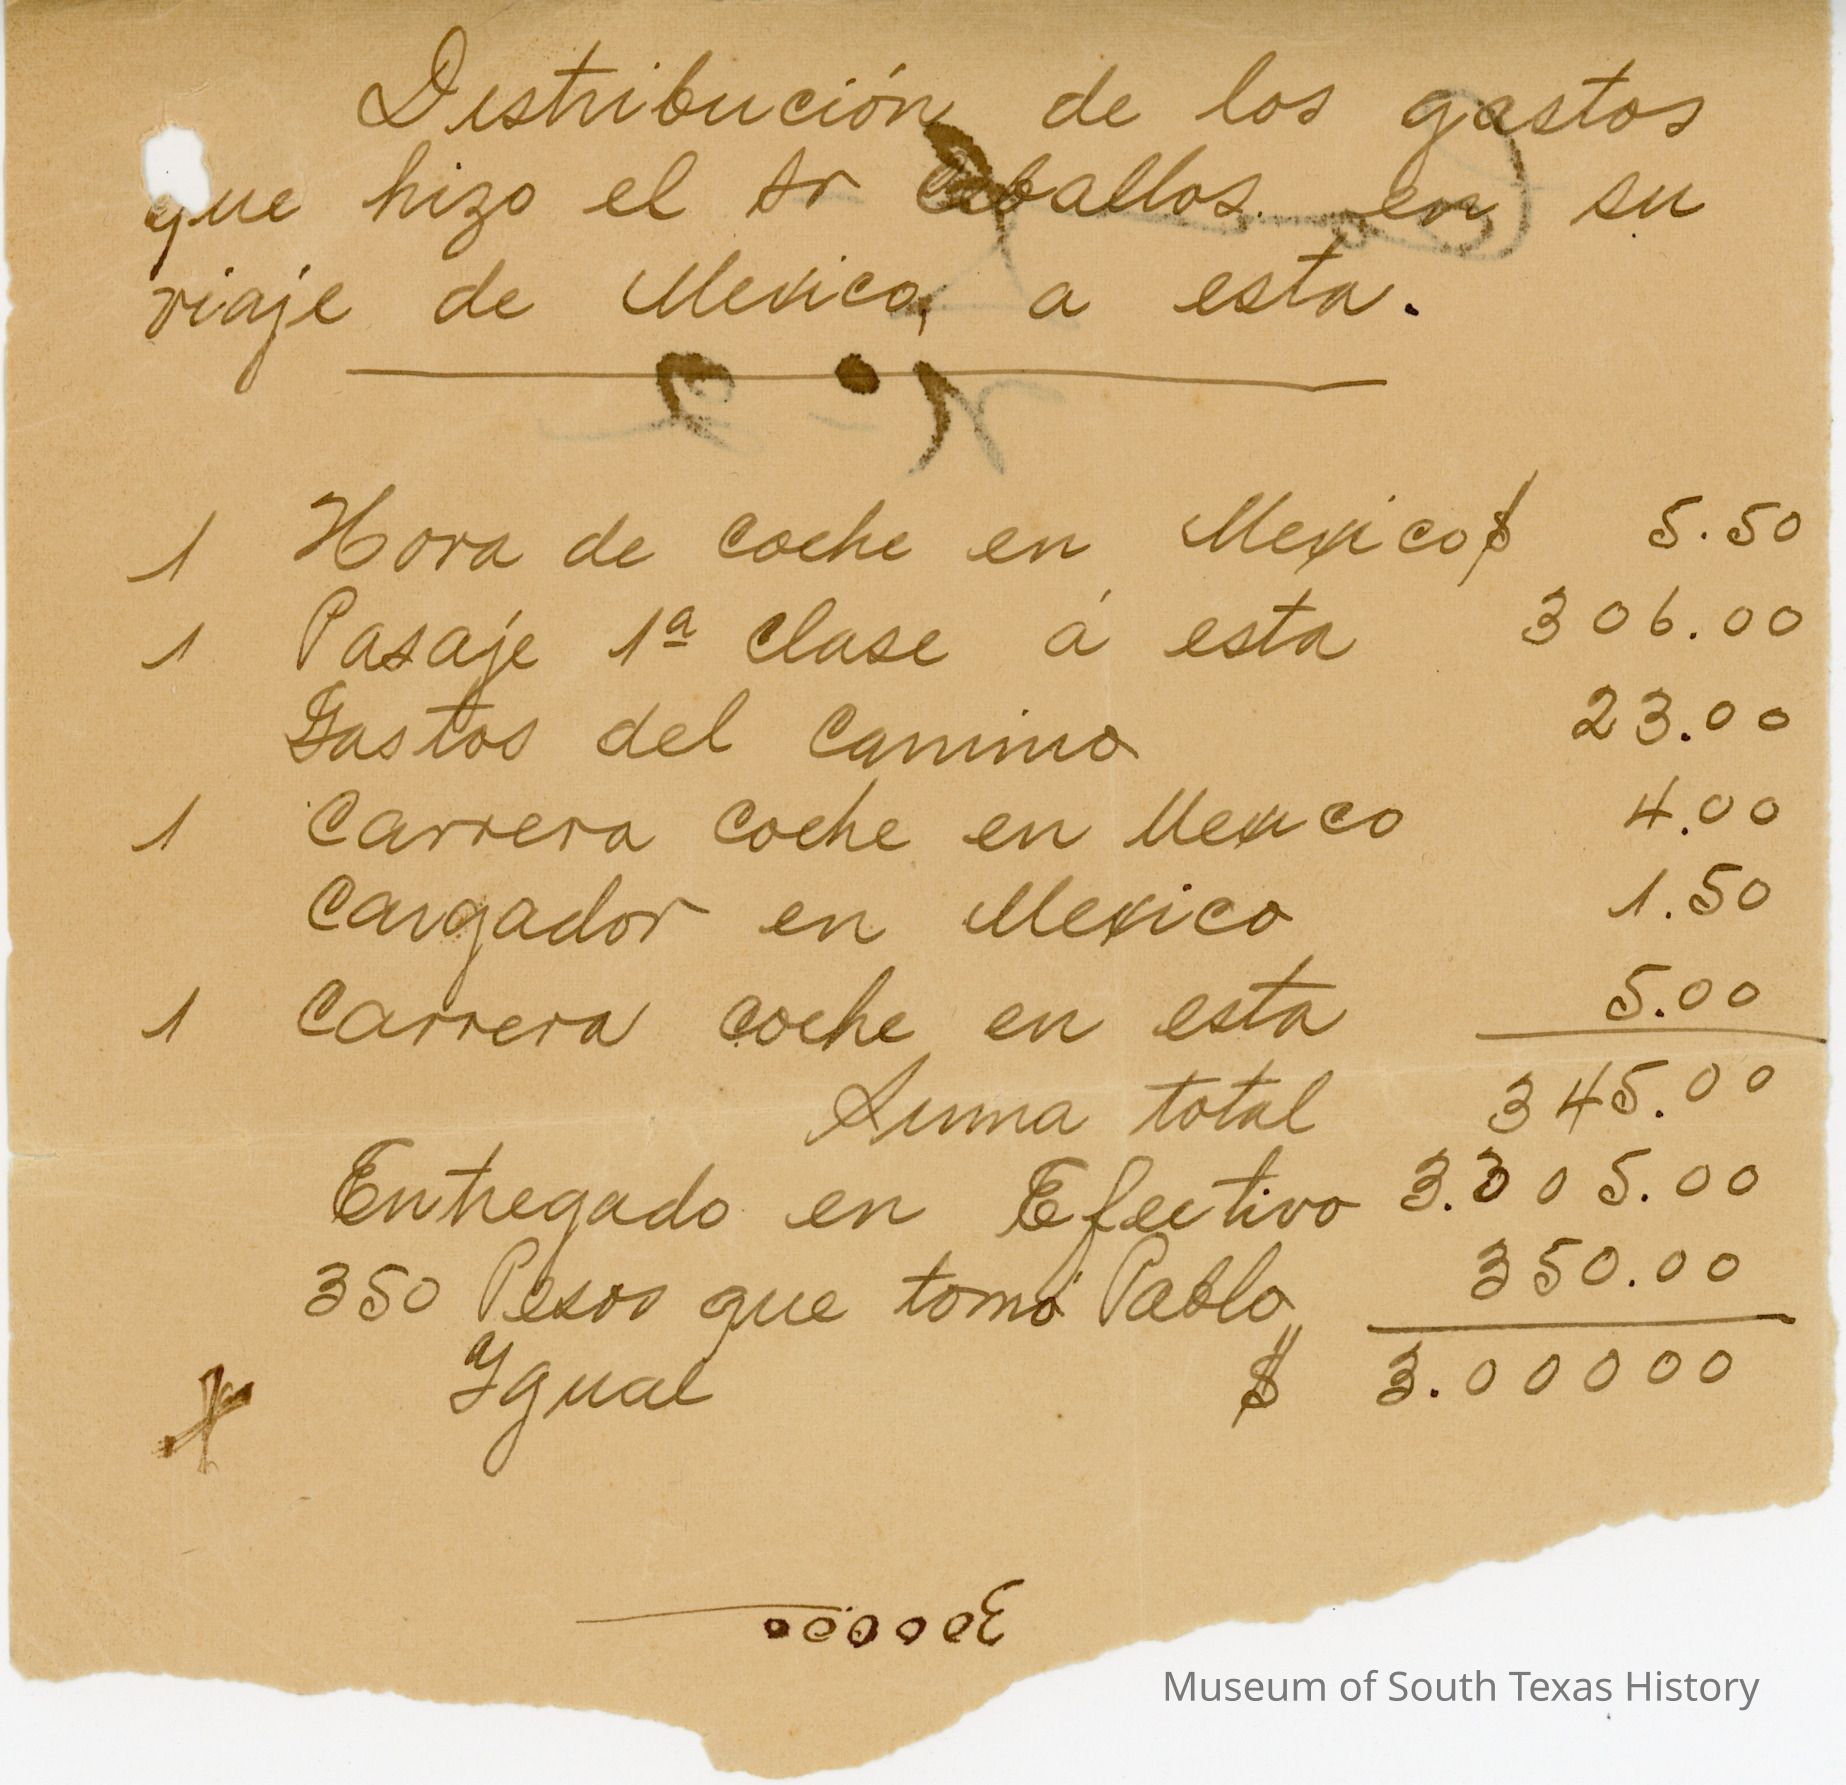 Distribución de los gastos
que hizo el Sr Ceballos en su
viaje de Mexico, a esta.
1 Hora de coche en Mexico $ 5.50
1 Pasaje 1ª clase á esta 306.00
Gastos del Camino 23.00
1 Carrera coche en Mexico 4.00
Cargador en Mexico 1.50
1 Carrera coche en esta 5.00
Suma total 345.00
Entregado en Efectivo 3.305.00
350 Pesos que tomó Pablo 350.00
Igual $ 3.00000
Museum of South Texas History